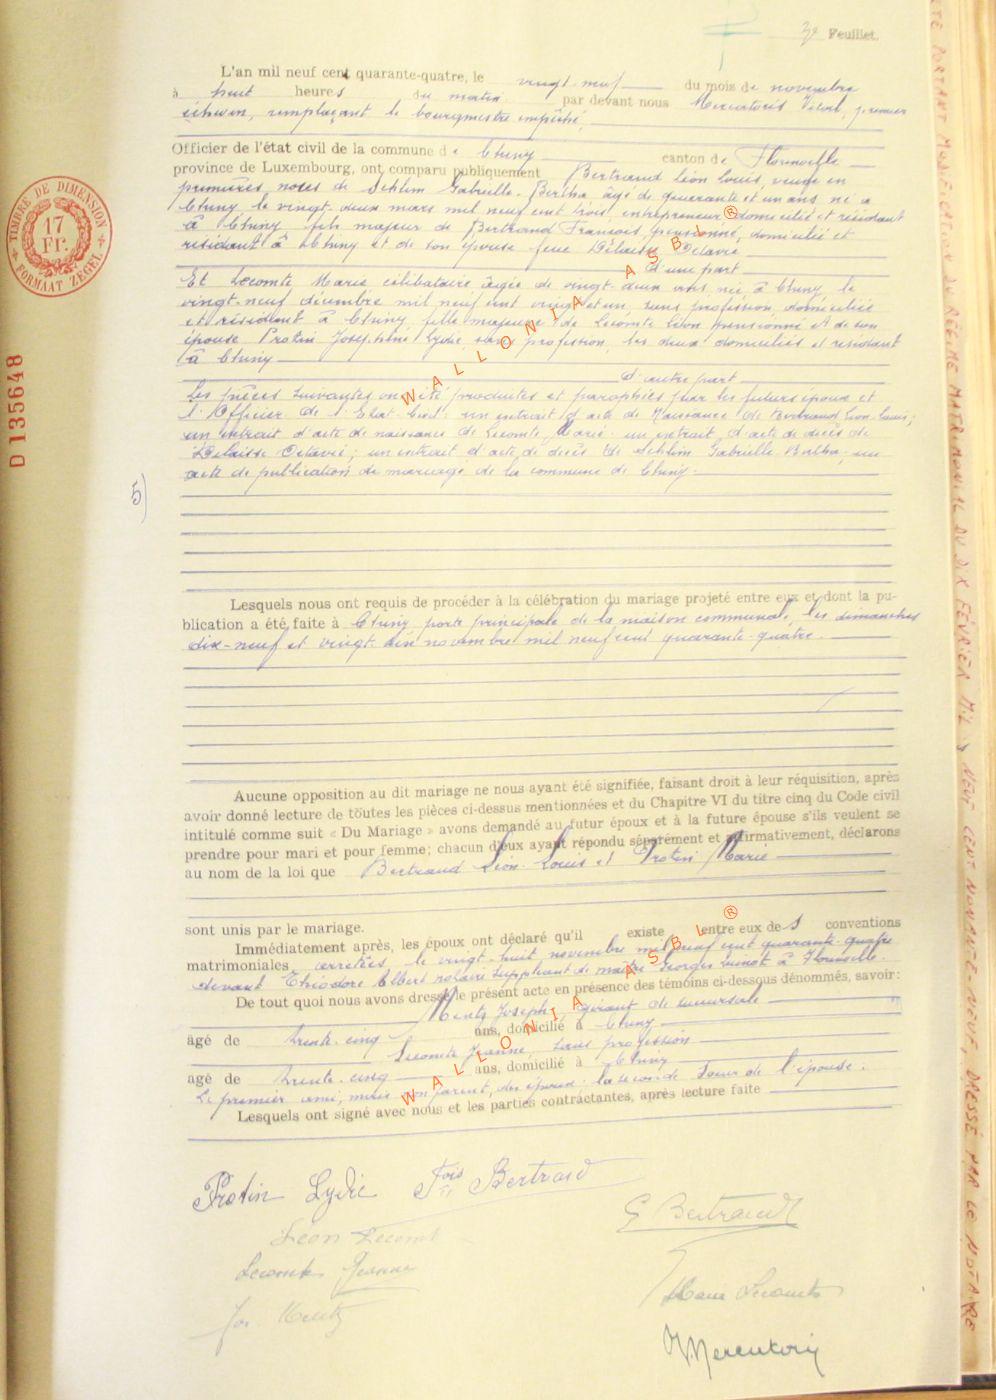 3e Feuillet.
L'an mil neuf cent quarante-quatre, le vingt-neuf du mois de novembre
à huit heures du matin par devant nous Mercatoris Vital, premier
échevin, remplaçant le bourgmestre empêché,
Officier de l'état civil de la commune de Chiny canton de Florenville
province de Luxembourg, ont comparu publiquement Bertrand Léon Louis, veuf en
premières noces de Schlim Gabrielle-Bertha âgé de quarante et un ans, né à
Chiny le vingt-deux mars mil neuf cent trois, entrepreneur domicilié et résidant
à Chiny fils majeur de Bertrand François, pensionné, domicilié et
résidant à Chiny et de son épouse feue Delaisse Octavie
d'une part
Et Lecomte Marie célibataire âgée de vingt-deux ans, née à Chiny, le
vingt-neuf décembre mil neuf cent vingt et un, sans profession, domiciliée
et résidant à Chiny, fille majeure de Lecomte Léon pensionné et de son
épouse Protin Joséphine Lydie, sans profession, les deux domiciliés et résidant
à Chiny
d'autre part
Les pièces suivantes ont été produites et paraphées par les futurs époux et
l'Officier de l'Etat-Civil: un extrait d'acte de Naissance de Bertrand Léon-Louis;
un extrait d'acte de naissance de Lecomte Marie; un extrait d'acte de décès de
Delaisse Octavie; un extrait d'acte de décès de Schlim Gabrielle-Bertha; un
acte de publication de mariage de la commune de Chiny.
5)
Lesquels nous ont requis de procéder à la célébration du mariage projeté entre eux et dont la pu-
blication a été faite à Chiny porte principale de la maison communale, les dimanches
dix-neuf et vingt-six novembre mil neuf cent quarante-quatre.
Aucune opposition au dit mariage ne nous ayant été signifiée, faisant droit à leur réquisition, après
avoir donné lecture de toutes les pièces ci-dessus mentionnées et du Chapitre VI du titre cinq du Code civil
intitulé comme suit « Du Mariage » avons demandé au futur époux et à la future épouse s'ils veulent se
prendre pour mari et pour femme; chacun d'eux ayant répondu séparément et affirmativement, déclarons
au nom de la loi que Bertrand Léon-Louis et Protin Marie
sont unis par le mariage.
Immédiatement après, les époux ont déclaré qu'il existe entre eux des conventions
matrimoniales arrêtées le vingt-huit novembre mil neuf cent quarante-quatre
devant Théodore Albert notaire suppléant de maître Georges à Florenville.
De tout quoi nous avons dressé le présent acte en présence des témoins ci-dessous dénommés, savoir:
Mentz Joseph, gérant de succursale
âgé de trente-cinq ans, domicilié à Chiny
Lecomte Jeanne, sans profession
âgé de trente-cinq ans, domicilié à Chiny
Le premier ami, mais non parent, des époux, la seconde soeur de l'épouse.
Lesquels ont signé avec nous et les parties contractantes, après lecture faite
Protin Lydie
Fois Bertrand
Léon Lecomte
G Bertrand
Lecomte Jeanne
Marie Lecomte
Jos Mentz
Mercatoris
TIMBRE DE DIMENSION
17
Fr.
FORMAAT ZEGEL
D 135648
WALLONIA ASBL®
WALLONIA ASBL®
ACTE PORTANT MODIFICATION DU RÉGIME MATRIMONIAL DU DIX FÉVRIER MIL NEUF CENT NONANTE-NEUF, DRESSÉ PAR LE NOTAIRE